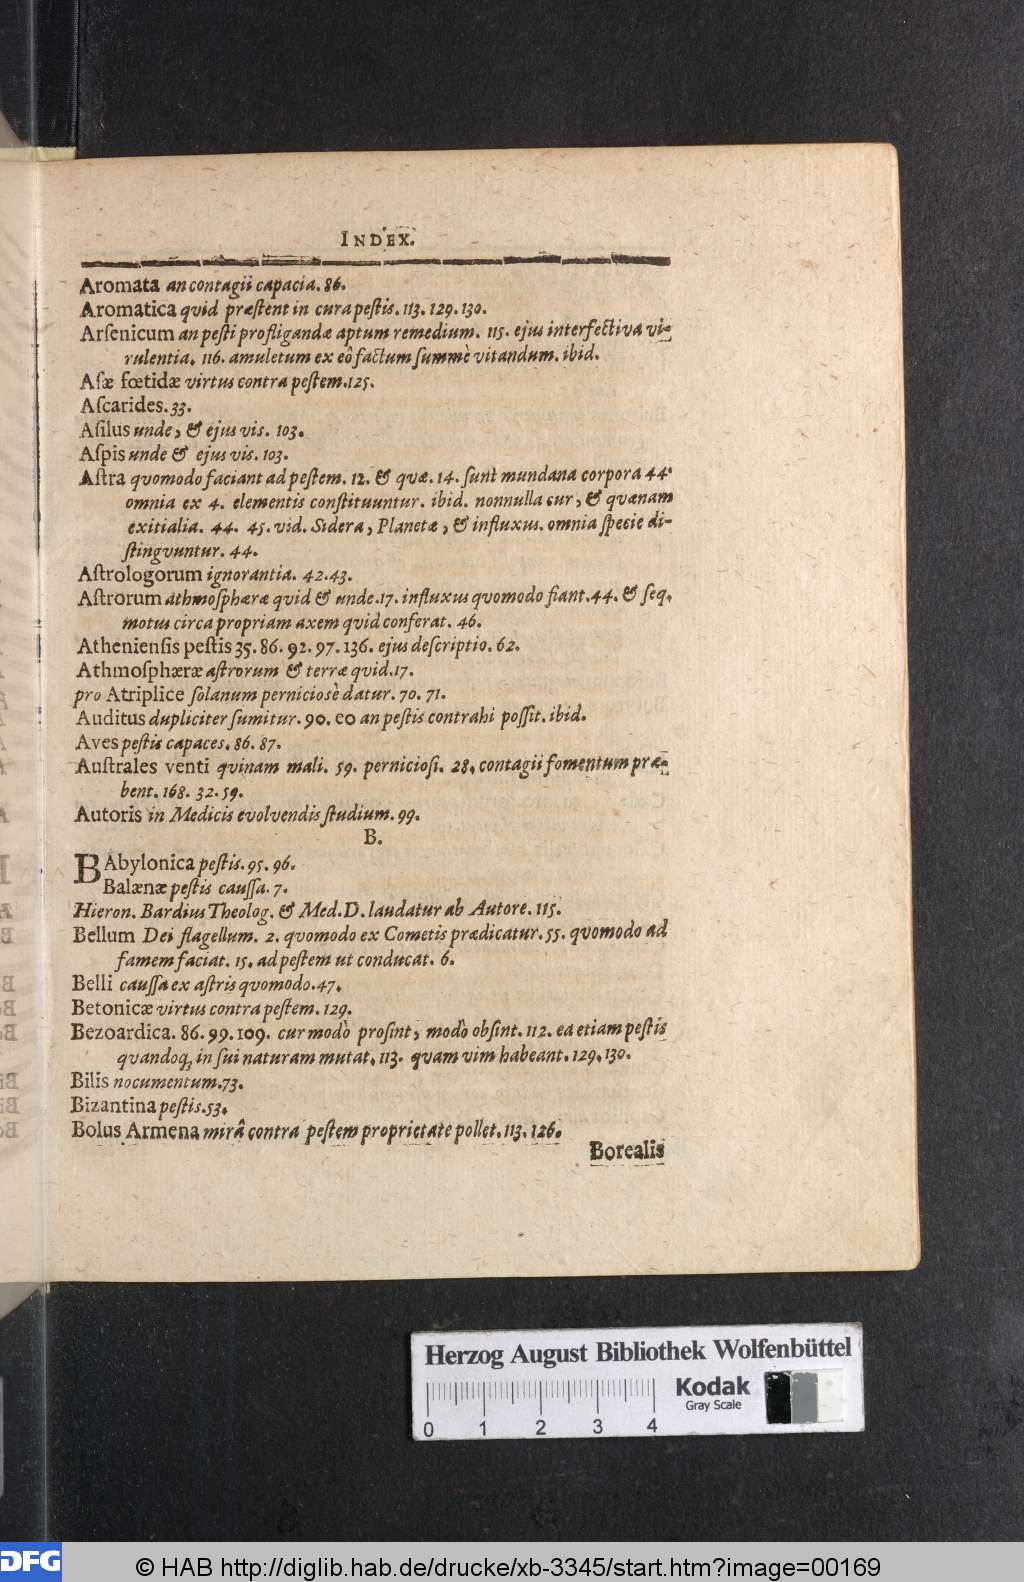 INDEX.
Aromata an contagii capacia. 86.
Aromatica quid præſtent in cura peſtis. 113. 129. 130.
Arſenicum an peſti profligandæ aptum remedium. 115. ejus interfectiva vi-
rulentia. 116. amuletum ex eô factum ſummè vitandum. ibid.
Aſæ fœtidæ virtus contra peſtem. 125.
Aſcarides. 33.
Aſilus unde, & ejus vis. 103.
Aſpis unde & ejus vis. 103.
Aſtra quomodo faciant ad peſtem. 12. & quæ. 14. ſunt mundana corpora 44.
omnia ex 4. elementis conſtituuntur. ibid. nonnulla cur, & quænam
exitialia. 44. 45. vid. Sidera, Planetæ, & influxus. omnia ſpecie di-
ſtingvuntur. 44.
Aſtrologorum ignorantia. 42. 43.
Aſtrorum athmoſphæræ quid & unde. 17. influxus qvomodo fiant. 44. & ſeq.
motus circa propriam axem quid conferat. 46.
Athenienſis peſtis 35. 86. 92. 97. 136. ejus deſcriptio. 62.
Athmoſphæræ aſtrorum & terræ qvid. 17.
pro Atriplice ſolanum perniciosè datur. 70. 71.
Auditus dupliciter ſumitur. 90. eo an peſtis contrahi poſſit. ibid.
Aves peſtis capaces. 86. 87.
Auſtrales venti quinam mali. 59. pernicioſi. 28. contagii fomentum præ-
bent. 168. 32. 59.
Autoris in Medicis evolvendis ſtudium. 99.
B.
BAbylonica peſtis. 95. 96.
Balænæ peſtis cauſſa. 7.
Hieron. Bardius Theolog. & Med. D. laudatur ab Autore. 115.
Bellum Dei flagellum. 2. quomodo ex Cometis prædicatur. 55. quomodo ad
famem faciat. 15. ad peſtem ut conducat. 6.
Belli cauſſa ex aſtris qvomodo. 47.
Betonicæ virtus contra peſtem. 129.
Bezoardica. 86. 99. 109. cur modò proſint, modò obſint. 112. ea etiam peſtis
quandoq; in ſui naturam mutat. 113. quam vim habeant. 129. 130.
Bilis nocumentum. 73.
Bizantina peſtis. 53.
Bolus Armena mirâ contra peſtem proprietate pollet. 113. 126.
Borealis
Herzog August Bibliothek Wolfenbüttel
Kodak
Gray Scale
0 1 2 3 4
DFG
© HAB http://diglib.hab.de/drucke/xb-3345/start.htm?image=00169